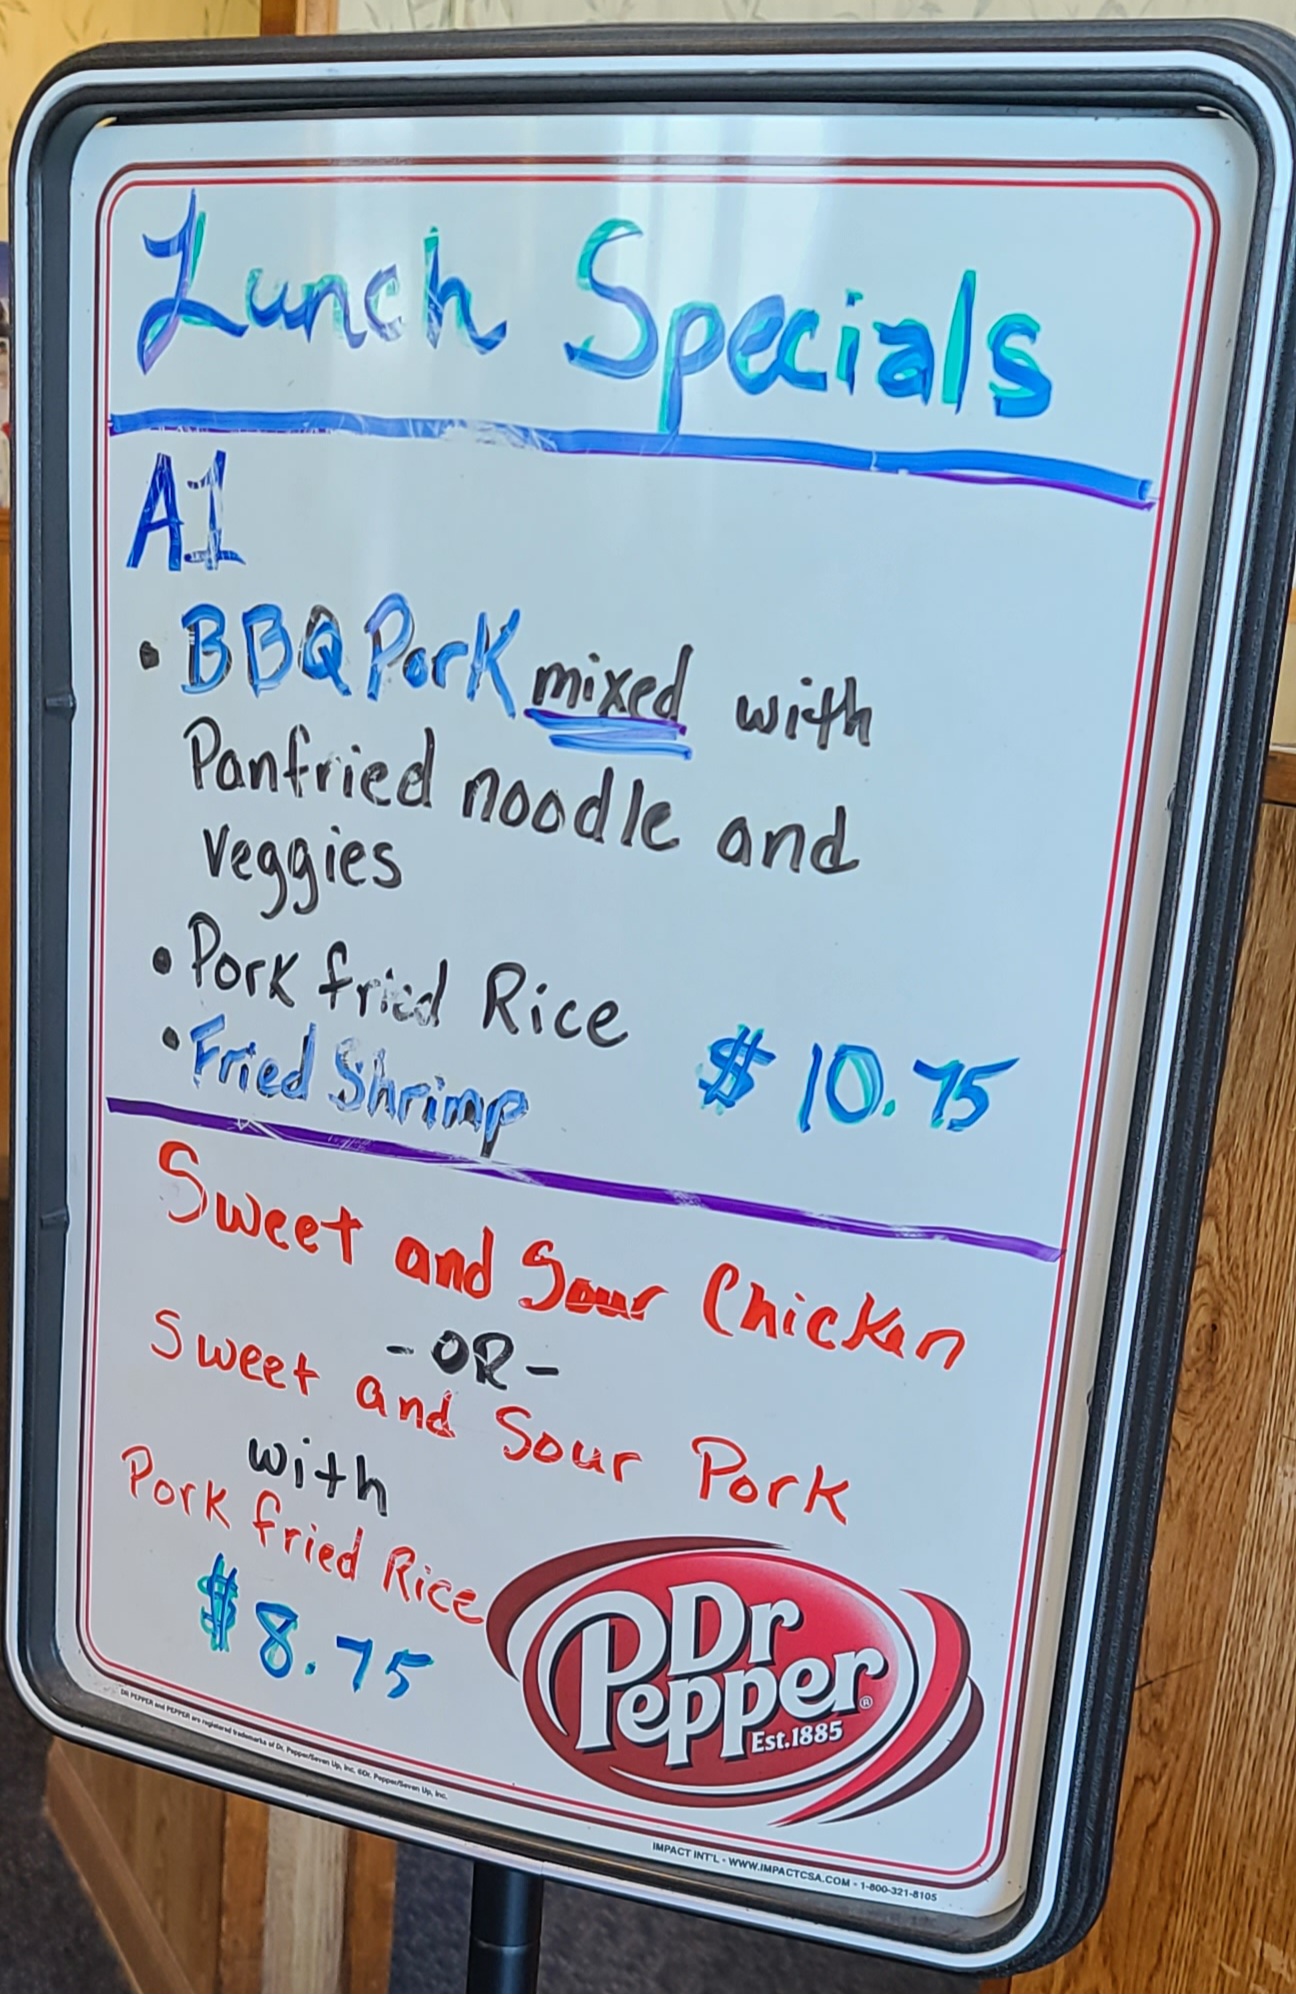 Lunch Specials
A1
• BBQ Pork mixed with
Panfried noodle and
veggies
• Pork fried Rice
• Fried Shrimp
$10.75
Sweet and Sour Chicken
-OR-
Sweet and Sour Pork
with
Pork fried Rice
$8.75
Dr
Pepper®
Est.1885
DR PEPPER and PEPPER are registered trademarks of Dr. Pepper/Seven Up, Inc. ©Dr. Pepper/Seven Up, Inc.
IMPACT INT'L - WWW.IMPACTCSA.COM - 1-800-321-8105